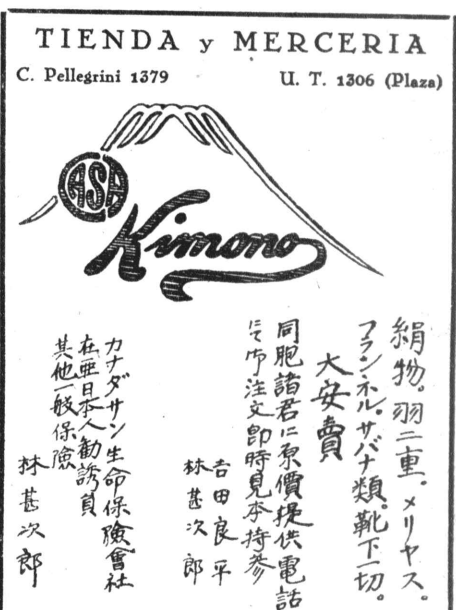 TIENDA y MERCERIA
C. Pellegrini 1379
U. T. 1306 (Plaza)
CASA
Kimono
絹物。羽二重。メリヤス。
フランネル。サバナ類。靴下一切。
大安賣
同胞諸君に原價提供電話
にて御注文即時見本持参
吉田良平
林甚次郎
カナダサン生命保險會社
在亜日本人勧誘員
其他一般保險
林甚次郎